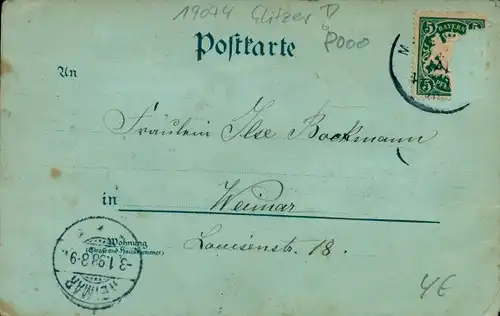 19074 Glitzer D
P000
Postkarte
5 BAYERN 5
M
An
Fräulein Ilse Bockmann
in Weimar
Wohnung
(Straße und Hausnummer)
Louisenstr. 18.
WEIMAR
-3.1.98.8-9
4€